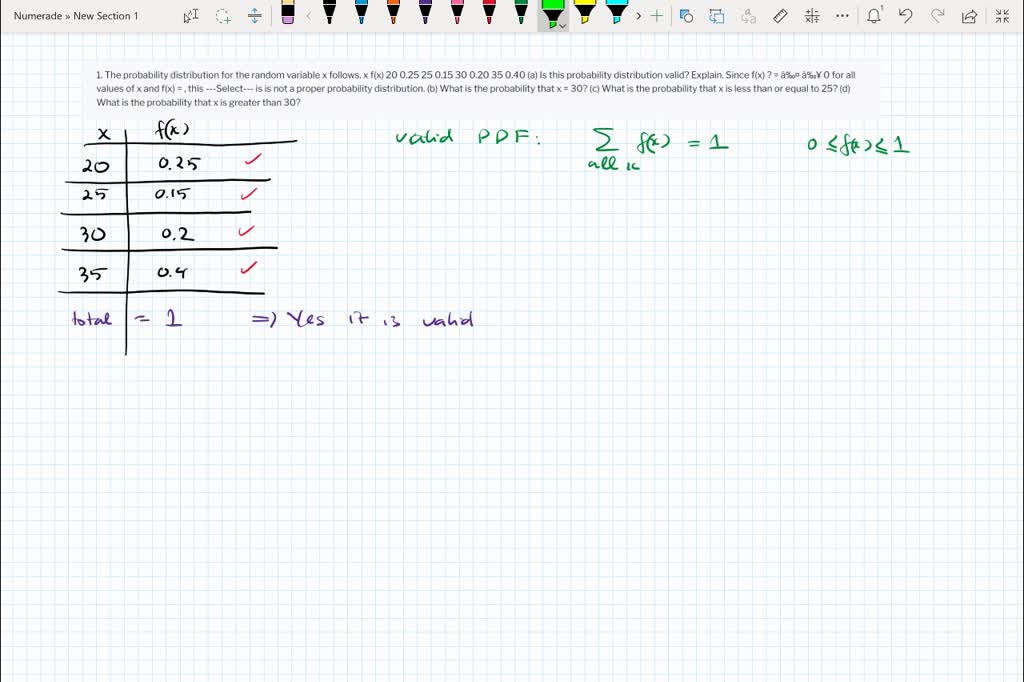 Numerade » New Section 1
1. The probability distribution for the random variable x follows. x f(x) 20 0.25 25 0.15 30 0.20 35 0.40 (a) Is this probability distribution valid? Explain. Since f(x) ? = â‰¤ â‰¥ 0 for all
values of x and f(x) = , this ---Select--- is is not a proper probability distribution. (b) What is the probability that x = 30? (c) What is the probability that x is less than or equal to 25? (d)
What is the probability that x is greater than 30?
x f(x)
20 0.25 ✓
25 0.15 ✓
30 0.2 ✓
35 0.4 ✓
total = 1 => Yes it is valid
valid PDF: ∑ f(x) = 1 0 ≤ f(x) ≤ 1
all x